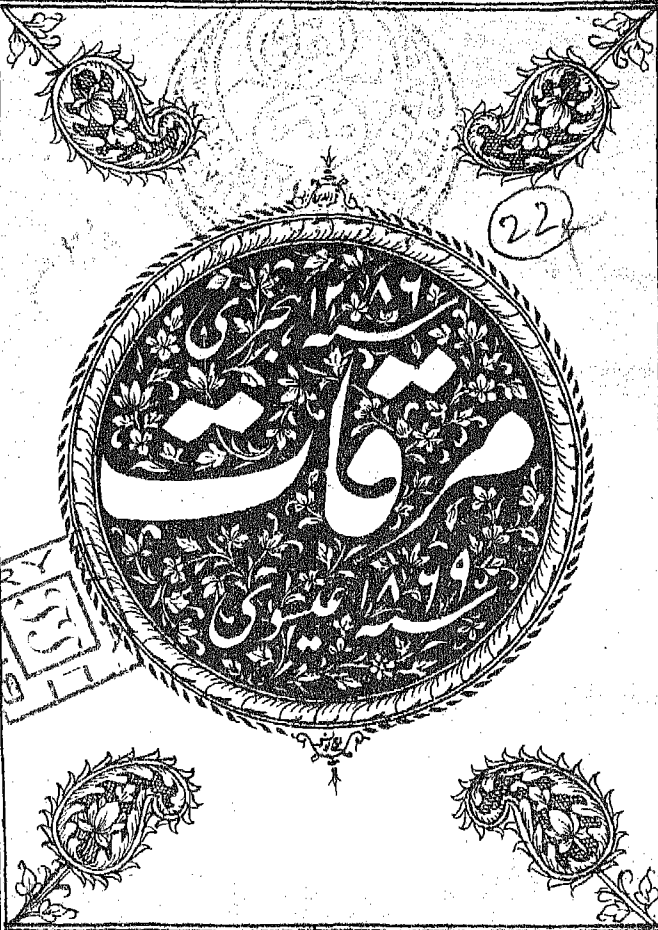 22
سنه ۱۲۸۶ ہجری
مرقات
سنه ۱۸۶۹ عیسوی